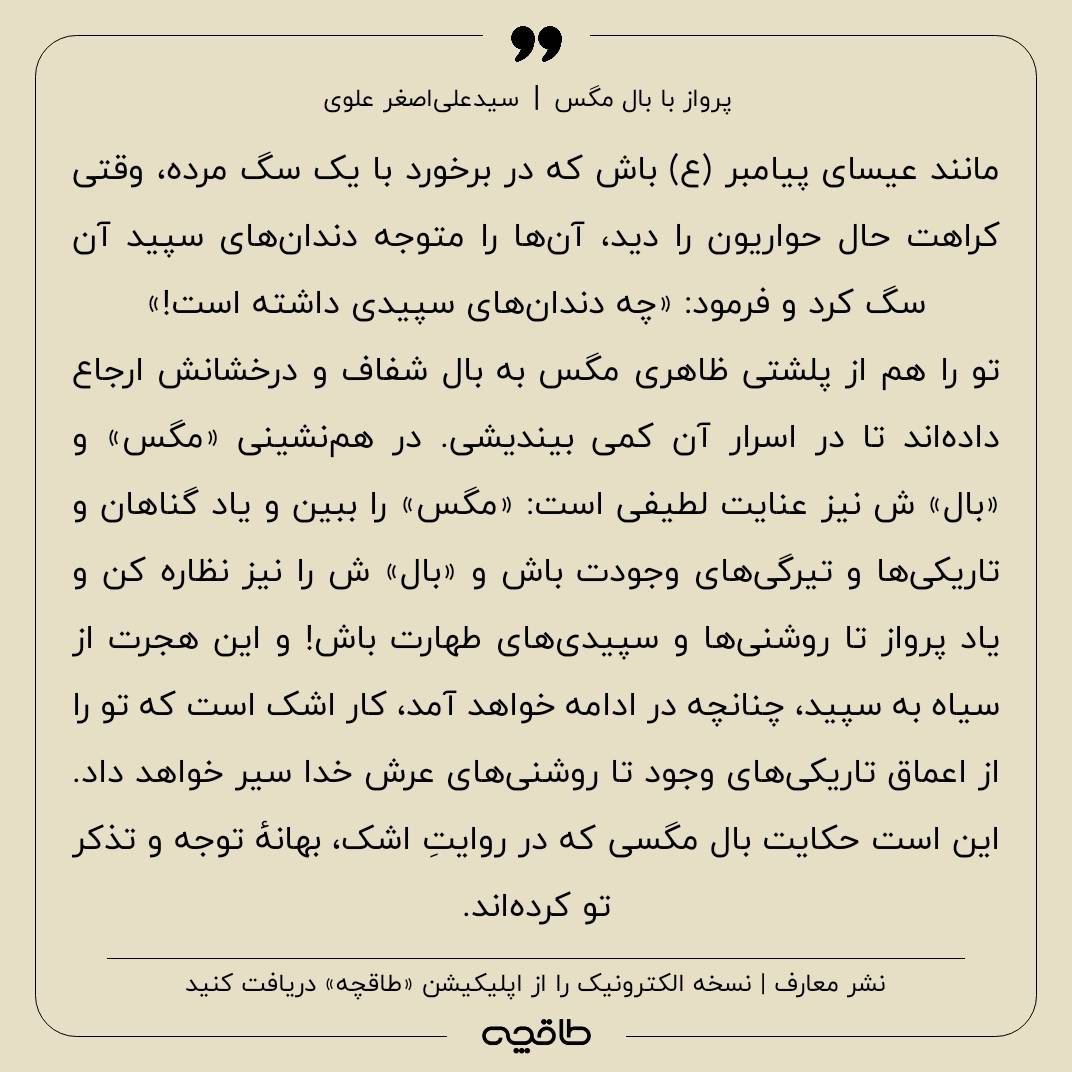 ❟❟
پرواز با بال مگس | سیدعلی‌اصغر علوی
مانند عیسای پیامبر (ع) باش که در برخورد با یک سگ مرده، وقتی
کراهت حال حواریون را دید، آن‌ها را متوجه دندان‌های سپید آن
سگ کرد و فرمود: «چه دندان‌های سپیدی داشته است!»
تو را هم از پلشتی ظاهری مگس به بال شفاف و درخشانش ارجاع
داده‌اند تا در اسرار آن کمی بیندیشی. در هم‌نشینی «مگس» و
«بال» ش نیز عنایت لطیفی است: «مگس» را ببین و یاد گناهان و
تاریکی‌ها و تیرگی‌های وجودت باش و «بال» ش را نیز نظاره کن و
یاد پرواز تا روشنی‌ها و سپیدی‌های طهارت باش! و این هجرت از
سیاه به سپید، چنانچه در ادامه خواهد آمد، کار اشک است که تو را
از اعماق تاریکی‌های وجود تا روشنی‌های عرش خدا سیر خواهد داد.
این است حکایت بال مگسی که در روایتِ اشک، بهانهٔ توجه و تذکر
تو کرده‌اند.
نشر معارف | نسخه الکترونیک را از اپلیکیشن «طاقچه» دریافت کنید
طاقچه